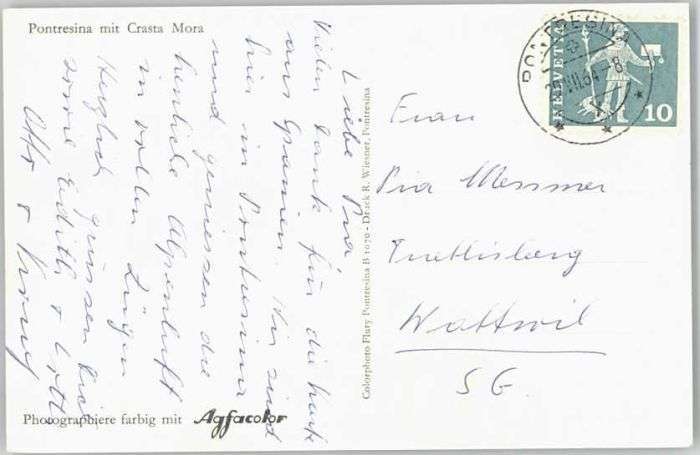 Pontresina mit Crasta Mora
Liebe Pia
Vielen Dank für die Karte
aus Spanien. Wir sind
hier in Pontresina
und geniessen die
herrliche Alpenluft
in vollen Zügen
Herzlich grüssen Dich
sowie Edith &
Otto &
Photographiere farbig mit Agfacolor
Colorphoto Flury Pontresina B 1070 - Druck R. Wiesner, Pontresina
PONTRESINA
VII.64
HELVETIA
10
Frau
Pia Messmer
Wattwil
SG.